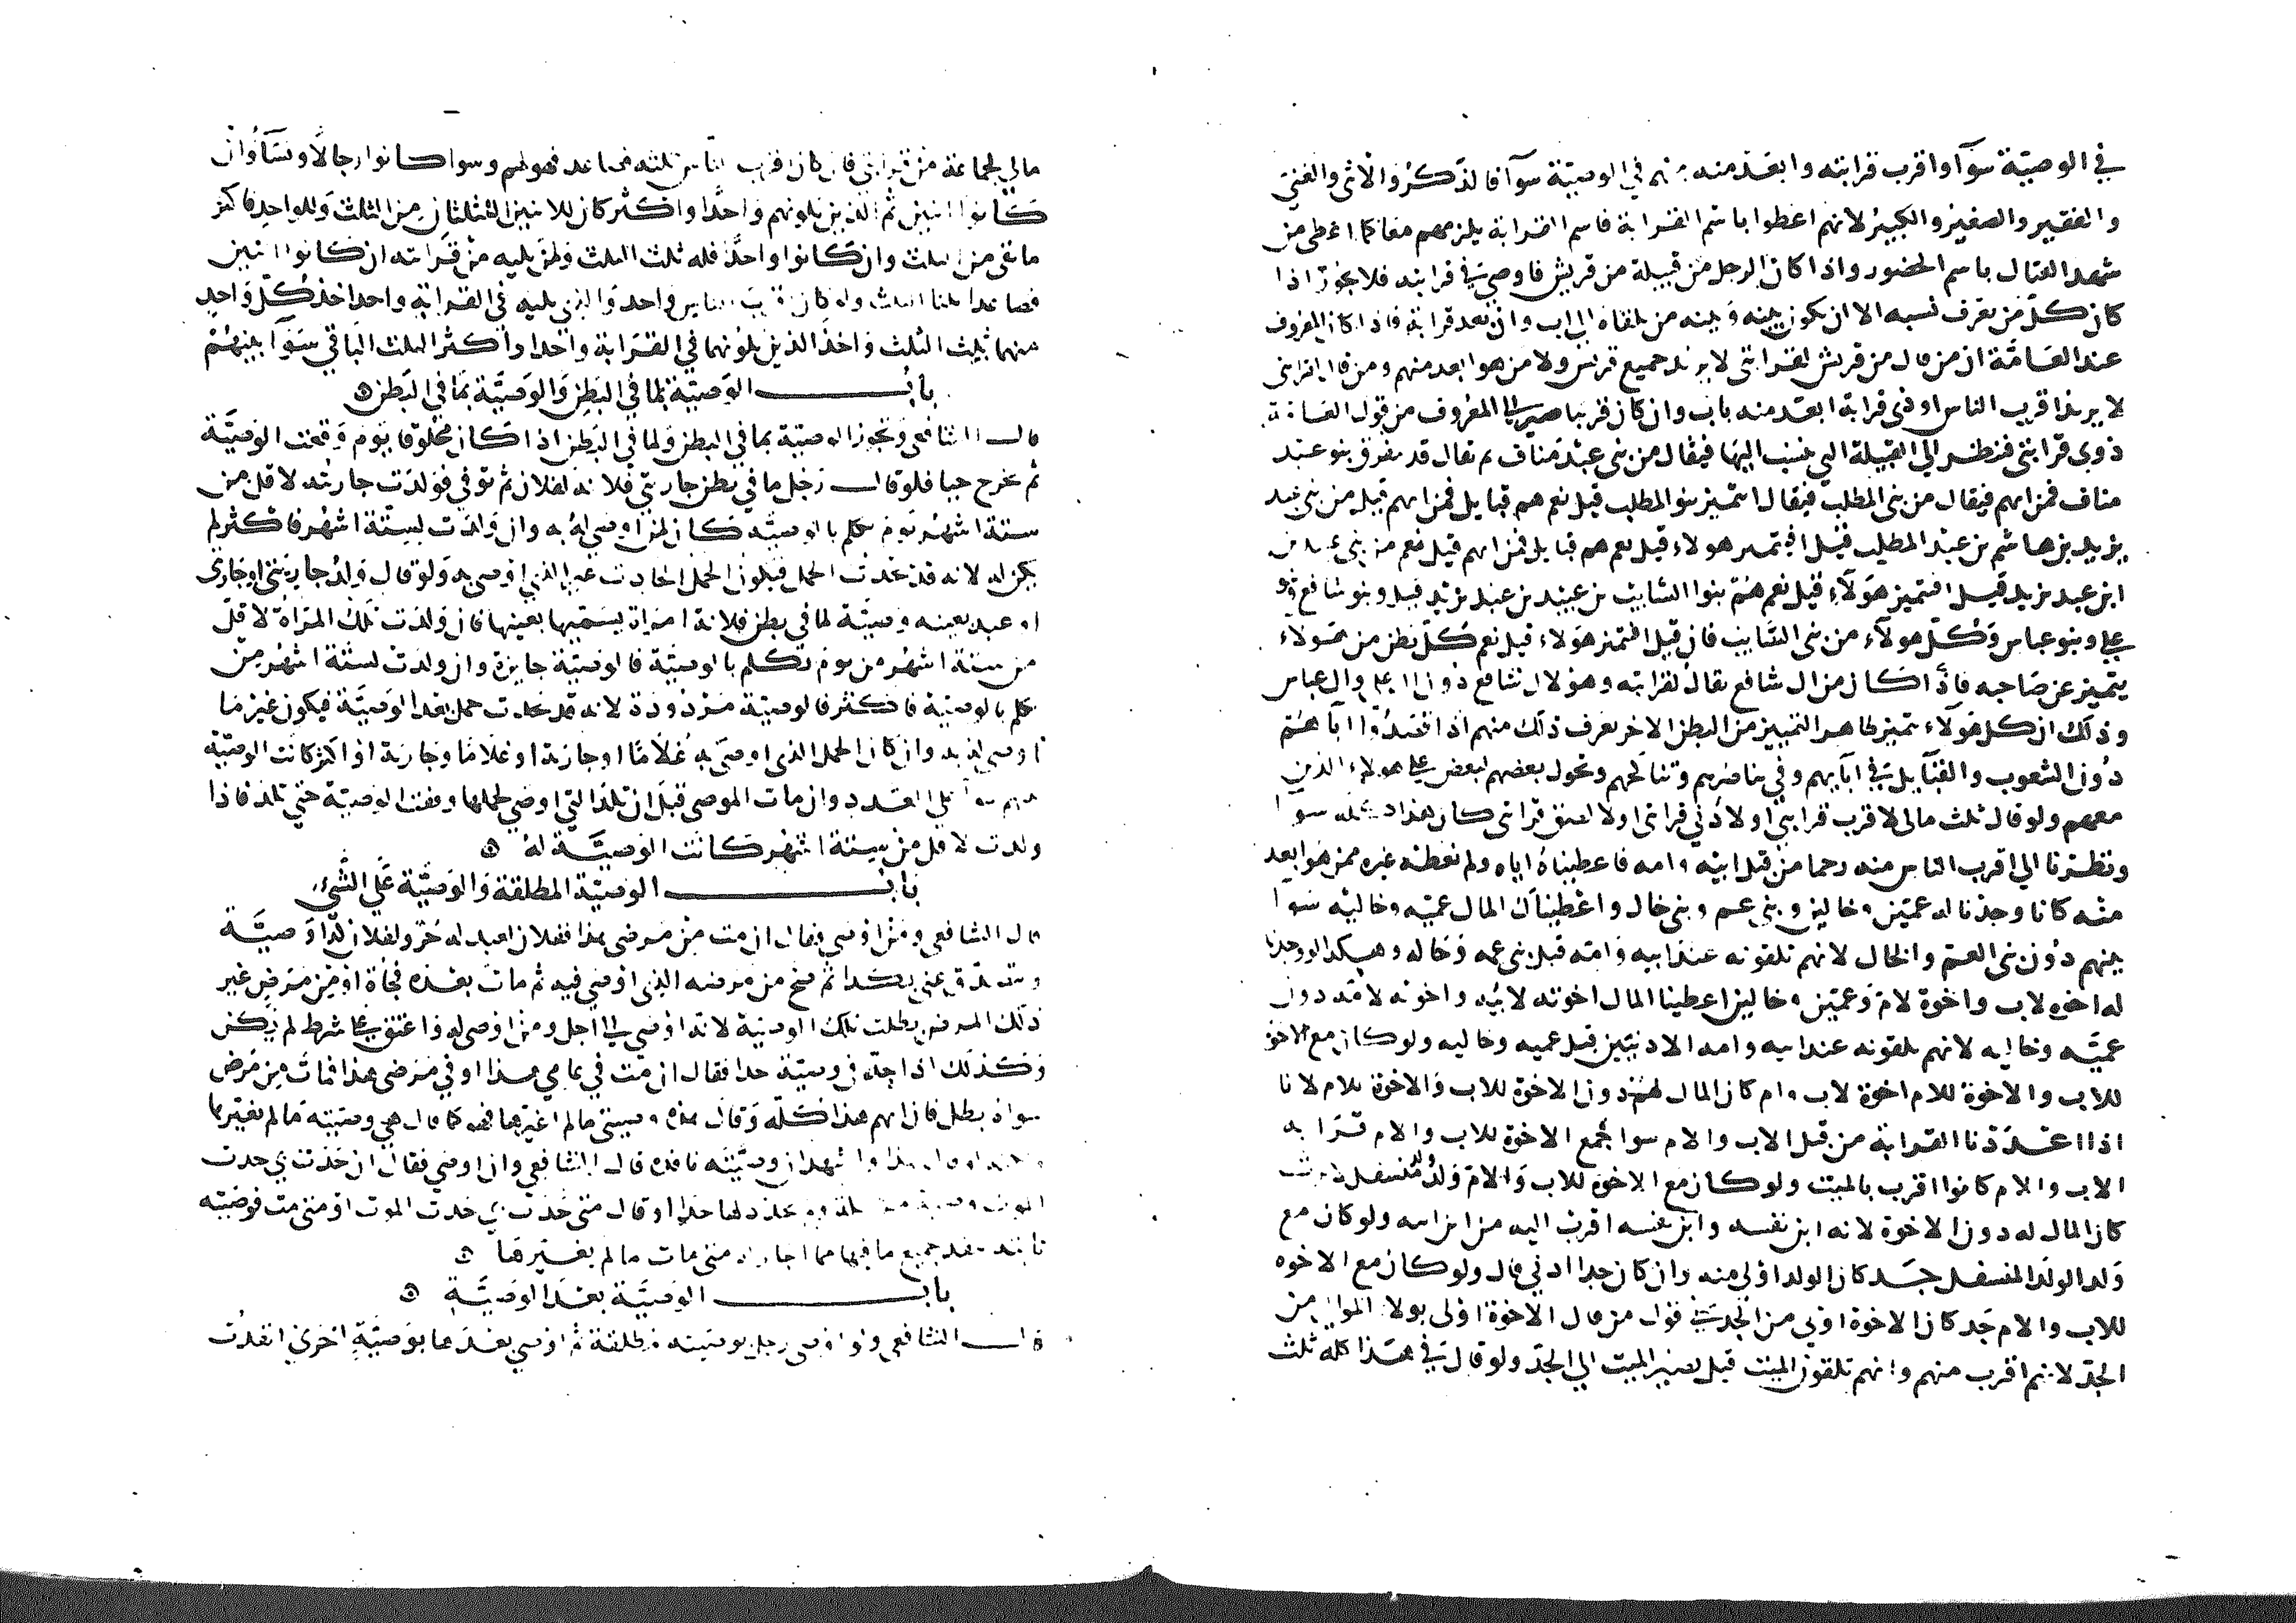 في الوصيّة سوآ واقرب قرابته وابعد منه منه في الوصيّة سوآ فالذكر والانثى والغنيّ
والفقير والصغير والكبير لانهم اعطوا باسم القرابة فاسم القرابة يلزمهم معا كما اعطى من
شهد القتال باسم الحضور واذا كان الرجل من قبيلة من قريش فاوصى في قرابته فلا يجوز اذا
كان كلّ من يعرف نسبه الا ان يكون بينه وبينه من يلقاه الى اب وان بعد قرابة فاذا كان المعروف
عند العامّة ان من قال من قريش لقرابتى لا يريد جميع قريش ولا من هو ابعد منهم ومن قال لقرابتى
لا يريد اقرب الناس او ذى قرابة ابعد منه باب وان كان قريبا صير الى المعروف من قول العامة
ذوى قرابتى فنظر الى القبيلة التي ينسب اليها فيقال من بنى عبد مناف ثم يقال قد يفرق بنو عبد
مناف فمن ايهم فيقال من بنى المطلب فيقال ايتميز بنو المطلب قيل نعم هم قبايل فمن ايهم قيل من بنى عبد
يزيد بن هاشم بن عبد المطلب قيل افيتميز هولاء قيل نعم هم قبايل فمن ايهم قيل نعم من بنى عبيد بن
ابن عبد يزيد قيل افيتميز هولاء قيل نعم هم بنوا السايب بن عبيد بن عبد يزيد قيل وبنو شافع وبنو
على وبنو عباس وكلّ هولآء من بنى السّايب فان قيل افيتميز هولاء قيل نعم كلّ بطن من هولاء
يتميز عن صاحبه فاذا كان من ال شافع يقال لقرابته وهو لال شافع دون ال علي وال عباس
وذلك ان كل هولاء يتميز ظاهر التمييز من البطن الاخر يعرف ذلك منهم اذا قصدوا اباهم
دون الشعوب والقبآيل في ابآيهم وفي تناصرهم وتناكحهم وتحول بعضهم لبعض على هولاء الذين
معهم ولو قال ثلث مالى لاقرب قرابتى او لادنى قرابتى او لالصق قرابتى كان هذا كله سوا
ونظرنا الى اقرب الناس منه رحما من قبل ابيه وامه فاعطيناه اياه ولم نعطه غيره ممن هو ابعد
منه كانا وجدنا له عمّين وخالين وبنى عم وبنى خال واعطينا ان المال عميه وخاليه سوا
بينهم دون بنى العم والخال لانهم يلقونه عند ابيه وامّه قبل بنى عمه وخاله وهكذا لو وجدنا
له اخوه لاب واخوة لام وعمّين وخالين اعطينا المال اخوته لابيه واخوته لامّه دون
عميّه وخاليه لانهم يلقونه عند ابيه وامه الادنيين قبل عميه وخاليه ولو كان مع الاخوة
للاب والاخوة للام اخوة لاب وام كان المال لهم دون الاخوة للاب والاخوة للام لانا
اذا اعددنا القرابة من قبل الاب والام سوا بجمع الاخوة للاب والام قرابه
الاب والام كانوا اقرب بالميت ولو كان مع الاخوة للاب والام ولد ولد متسفل
كان المال له دون الاخوة لانه ابن نفسه وابن نفسه اقرب اليه من ابن ابيه ولو كان مع
ولد الولد المتسفل جد كان الولد اولى منه وان كان جدا ادنى قال ولو كان مع الاخوه
للاب والام جد كان الاخوة اولى من الجد في قول من قال الاخوة اولى بولا الموالى من
الجدّ لانهم اقرب منهم وانهم يلقون الميت قبل يصير الميت الى الجدّ ولو قال في هذا كله ثلث
مالي لجماعة من قرابتى فان كان اقرب الناس ثلثه فصاعد فهو لهم وسوا كانوا رجالا ونسآ وان
كانوا اثنين ثم الذين يلونهم واحدا واكثر كان للاثنين الثلثان من الثلث وللواحد فاكثر
ما بقى من الثلث وان كانوا واحدا فله ثلث الثلث ولمن يليه من قرابته ان كانوا اثنين
فصاعدا ثلثا الثلث ولو كان اقرب الناس واحد والذى يليه في القرابة واحد اخذ كل واحد
منهما ثلث الثلث واخذ الذين يلونهما في القرابة واحدا واكثر الثلث الباقي سوا بينهم
باب الوصيّة بما في البطن والوصيّة بما في البطن
قال الشافعى وتجوز الوصيّة بما في البطن ولما في البطن اذا كان مخلوقا يوم وقعت الوصيّة
ثم يخرج حيا فلو قال رجل ما في بطن جاريتي فلانة لفلان ثم توفي فولدت جاريته لاقل من
ستة اشهر يوم تكلم بالوصيّة كان لمن اوصى له به وان ولدت لستة اشهر فاكثر لم
يكن له لانه قد يحدث الحمل فيكون الحمل الحادث غير الذى اوصى به ولو قال ولد جاريتى او جاريتى
او عبد بعينه وصيّة لما في بطن فلانة امراة يسمّيها بعينها فان ولدت تلك المراة لاقلّ
من ستة اشهر من يوم تكلم بالوصيّة فالوصيّة جايزة وان ولدت لستة اشهر من
تكلم بالوصيّة فاكثر فالوصيّة مردودة لانه قد يحدث حمل بعد الوصيّة فيكون غير ما
اوصى له به وان كان الحمل الذى اوصى به غلاما او جارية او غلاما وجارية او اكثر كانت الوصيّة
بينهم سوآ على العدد وان مات الموصى قبل ان تلد التى اوصى لحملها وقفت الوصيّة حتى تلد فاذا
ولدت لاقل من ستة اشهر كانت الوصيّة له
باب الوصيّة المطلقة والوصيّة على الشّئ
قال الشافعى ومن اوصى فقال ان مت من مرضى هذا ففلان لعبد له حر ولفلان كذا وصيّة
ويتصدّق عنى بكذا ثم صح من مرضه الذى اوصى فيه ثم مات بعده فجأة او من مرض غير
ذلك المرض بطلت تلك الوصيّة لانه اوصى الى اجل ومن اوصى له واعتق على شرط لم يكن
وكذلك اذا حدّ في وصيّة حدا فقال ان مت في عامي هذا او في مرضى هذا فمات من مرض
سواه بطل فان ابهم هذا كلّه وقال هذه وصيتى مالم اغيرها فهو كما قال هي وصيته مالم يغيرها
ولو قال هذا واشهد ان وصيّته نافذه قال الشافعى وان اوصى فقال ان حدث بي حدث
الموت وصية ولم يحدد لها حدا او قال متى حدث بي حدث الموت او متى مت فوصيته
ثابتة ينفذ جميع ما فيها مما اجاز له متى مات مالم يغيرها
باب الوصيّة بعد الوصيّة
قال الشافعى ولو اوصى رجل بوصيته مطلقة ثم اوصى بعدها بوصيّة اخرى انفذت